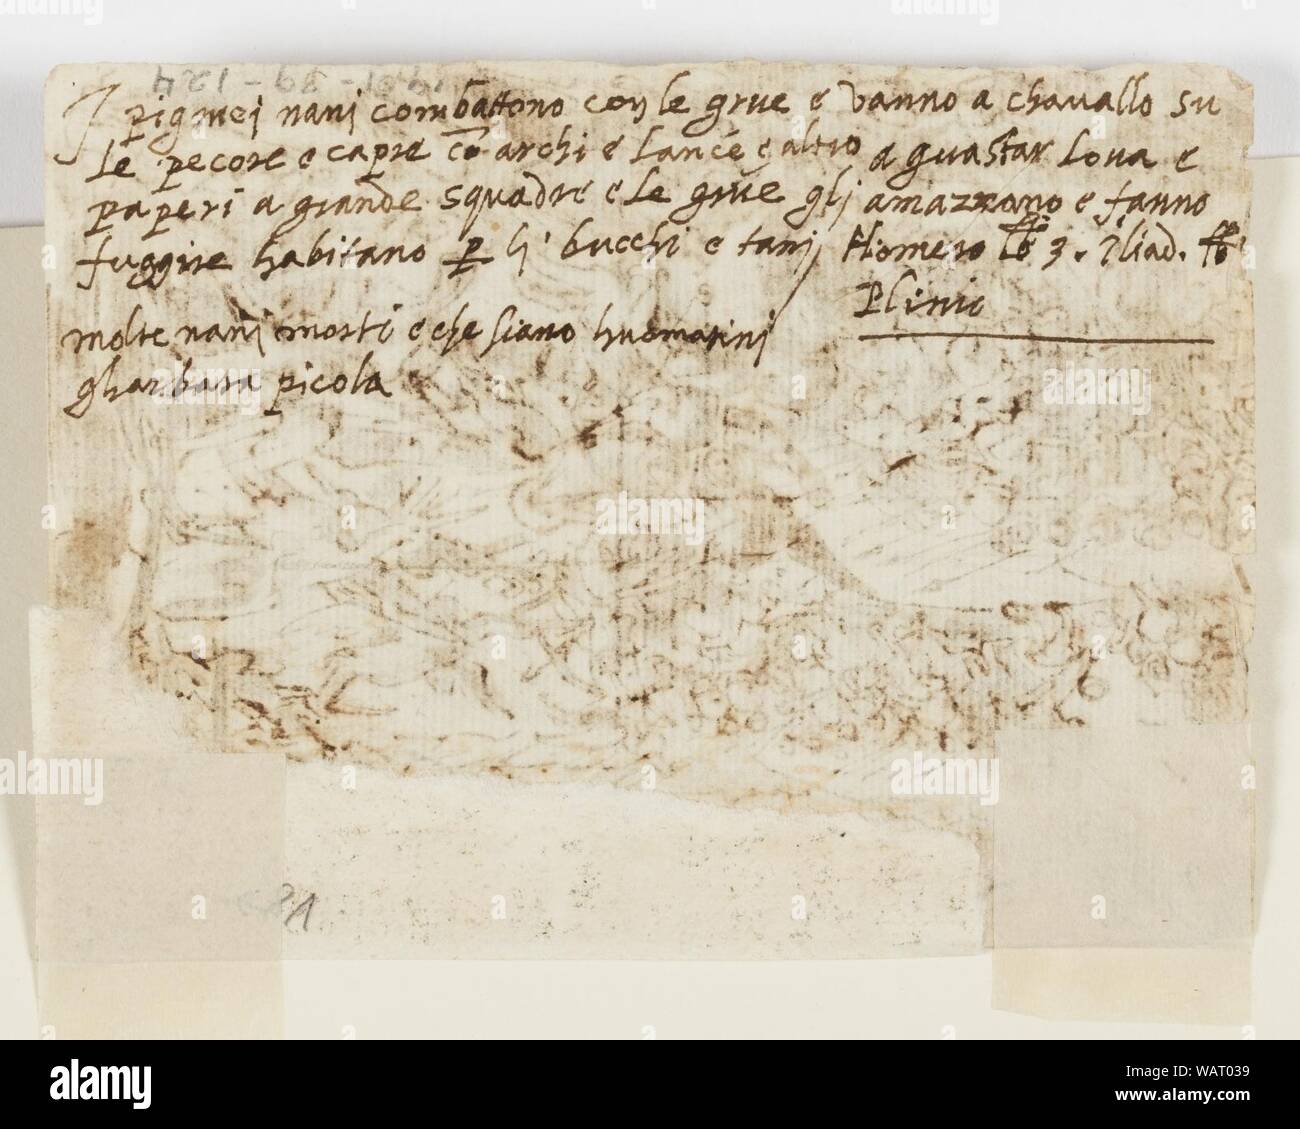 1901-39-124
I pigmei nani combattono con le grue e vanno a chavallo su
le pecore e capre cō archi e lance e altro a guastar lova e
paperi a grande squadre e le grue gli amazzano e fanno
fuggire habitano p li bucchi e tani Homero 3. Iliad.
Plinio
molte nani morti e che siano huomarini
gharbara picola
alamy
Image ID: WAT039
www.alamy.com